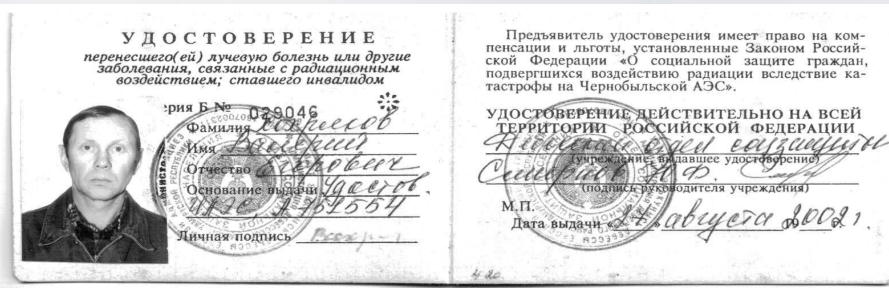 УДОСТОВЕРЕНИЕ
перенесшего(ей) лучевую болезнь или другие
заболевания, связанные с радиационным
воздействием; ставшего инвалидом
рия Б № 029046
Фамилия
Имя Валерий
Отчество Егорович
Основание выдачи Удостов.
ЧАЭС А 751554
Личная подпись
Предъявитель удостоверения имеет право на ком-
пенсации и льготы, установленные Законом Россий-
ской Федерации «О социальной защите граждан,
подвергшихся воздействию радиации вследствие ка-
тастрофы на Чернобыльской АЭС».
УДОСТОВЕРЕНИЕ ДЕЙСТВИТЕЛЬНО НА ВСЕЙ
ТЕРРИТОРИИ РОССИЙСКОЙ ФЕДЕРАЦИИ
отдел соцзащиты
(учреждение, выдавшее удостоверение)
Смирнов Н.Ф.
(подпись руководителя учреждения)
М.П.
Дата выдачи «27» августа 2002 г.